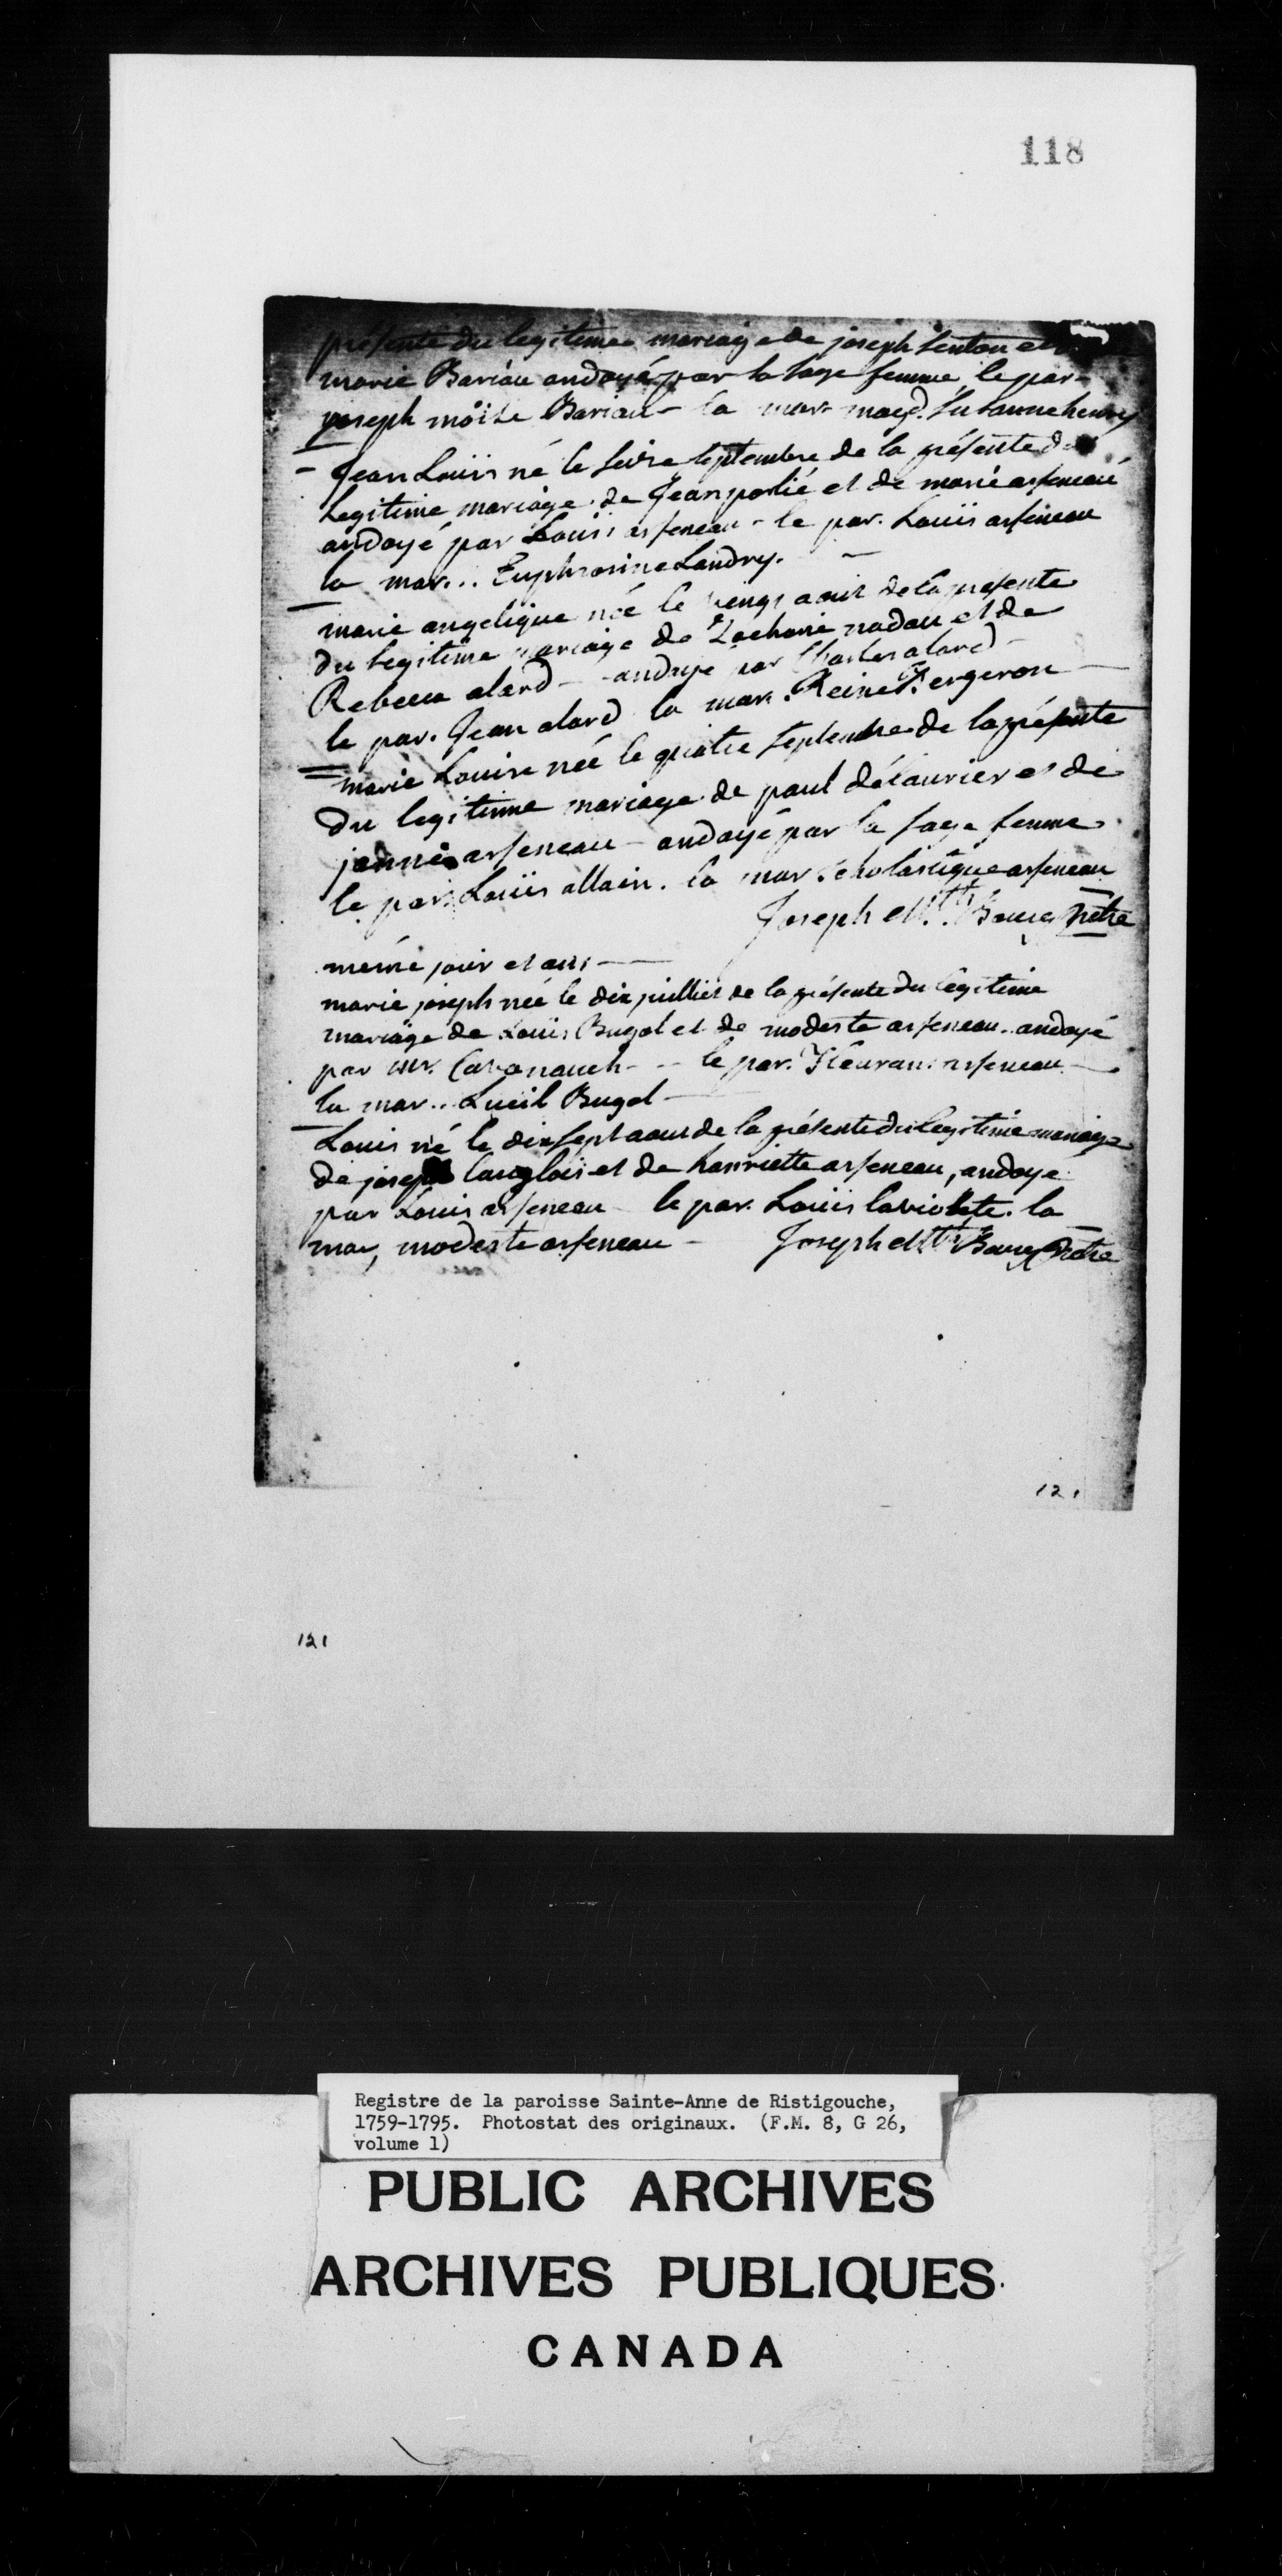 118
présente du legitime mariage de joseph et
marie Bariau andoyé par la sage femme, le par-
joseph môise Bariau - la mar. magd. Susanne henry
- Jean Louis né le seize septembre de la présente du
Legitime mariage de Jean porlié et de marie arseneau
andoyé par Louis arseneau - le par. Louis arseneau
la mar... Euphrosine Landry. -
marie angelique née le vingt aout de la presente
du legitime mariage de Zacharie nadau et de
Rebecca alard - andoyé par Charles alard -
le par. Jean alard la mar. Reine Fergeron -
= marie Louise née le quatre septembre de la présente
du legitime mariage de paul délaurier et de
jenne arseneau - andoyé par la sage femme
le par. Louis allain. la mar. scholastique arseneau
Joseph Mtt. Bourg prétre
même jour et ans -
marie joseph née le dix juilliet de la présente du legitime
mariage de Louis Bugol et de modeste arseneau. andoyé
par mr. Cavanauch - - le par. arseneau -
la mar.. Lucil Bugol -
Louis né le dix sept aout de la présente du legitime mariage
de joseph langlois et de hanriette arseneau, andoye
par Louis arseneau le par. Louis laviolete. la
mar, modeste arseneau - Joseph Mtt. Bourg prétre
121
121
Registre de la paroisse Sainte-Anne de Ristigouche,
1759-1795. Photostat des originaux. (F.M. 8, G 26,
volume 1)
PUBLIC ARCHIVES
ARCHIVES PUBLIQUES
CANADA